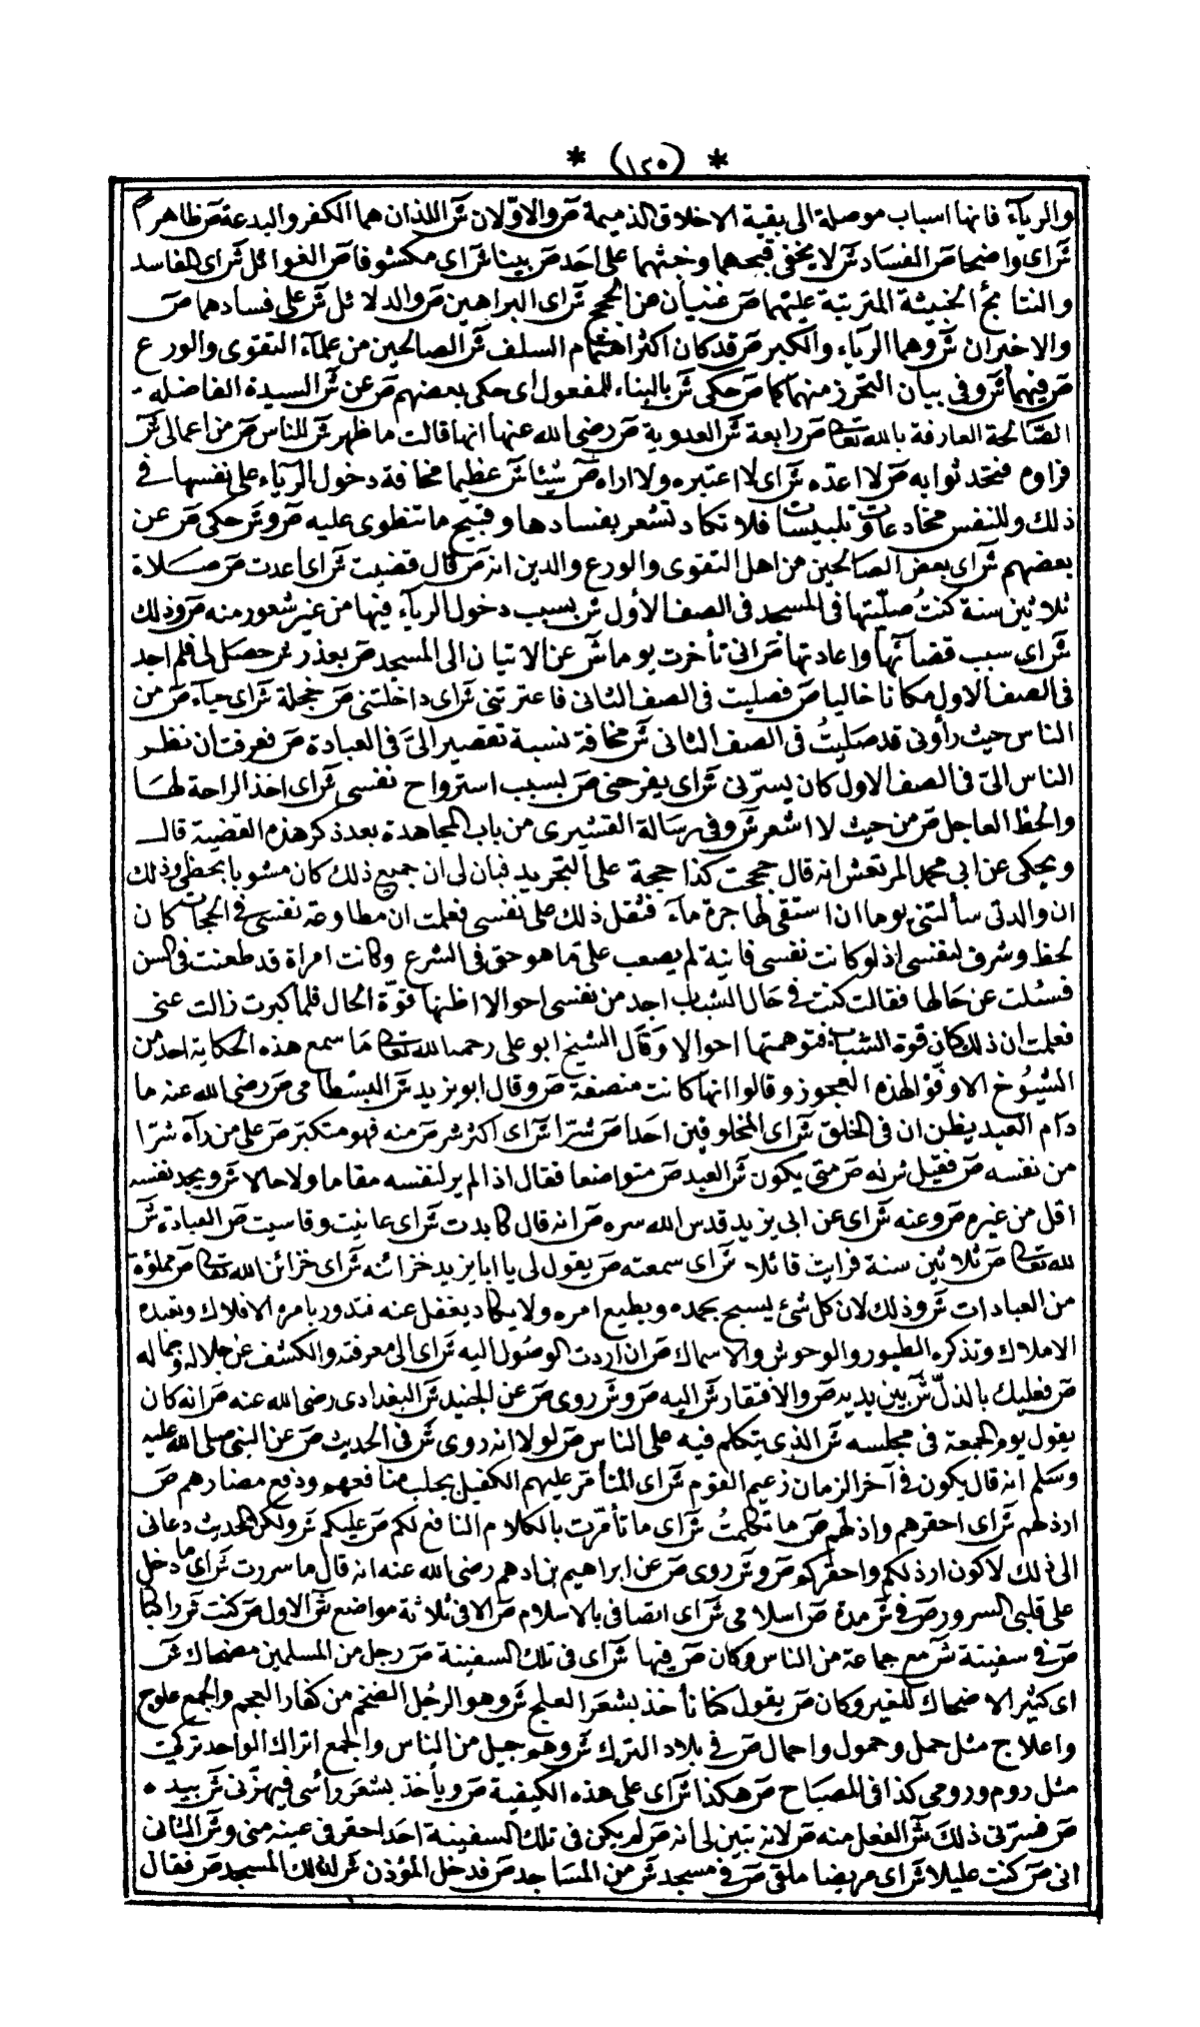 * (١٢٥) *
والريآء فانها اسباب موصلة الى بقية الاخلاق الذميمة صَ والاوّلان شَ اللذان هما الكفر والبدعة صَ ظاهرا
شَ اى واضحا صَ الفساد شَ لا يخفى قبحهما وخبثهما على احد صَ بينا شَ اى مكشوفا صَ الغوائل شَ اى المفاسد
والنتايج الخبيثة المترتبة عليهما صَ غنيان عن الحجج شَ اى البراهين صَ والدلائل شَ على فسادهما صَ
والاخيران شَ وهما الرياء والكبر صَ قد كان اكثر اهتمام السلف شَ الصالحين من علمآء التقوى والورع
صَ فيهما شَ وفى بيان التحرز منهما كما صَ حكى شَ بالبناء للمفعول اى حكى بعضهم صَ عن شَ السيدة الفاضلة
الصّالحة العارفة بالله تعالى صَ رابعة شَ العدوية صَ رضى الله عنها انها قالت ما ظهر شَ للناس صَ من اعمالى شَ
فراوه فنجد ثوابه صَ لا اعدّه شَ اى لا اعتبره ولا اراه صَ شيئا شَ عظيما مخافة دخول الريآء على نفسها فى
ذلك وللنفس مخادعات وتلبيسات فلا تكاد تشعر بفسادها وقبيح ما تنطوى عليه صَ وشَ حكى صَ عن
بعضهم شَ اى بعض الصالحين من اهل التقوى والورع والدين انه صَ قال قضيت شَ اى اعدت صَ صلاة
ثلاثين سنة كنتُ صليتها فى المسجد فى الصف الأول شَ بسبب دخول الريآء فيها من غير شعور منه صَ وذلك
شَ اى سبب قضآئها واعادتها صَ انى تأخرت يوما شَ عن الاتيان الى المسجد صَ بعذر شَ حصل لى فلم اجد
فى الصف الاول مكانا خاليا صَ فصليت فى الصف الثانى فاعترتنى شَ اى داخلتنى صَ خجلة شَ اى حيآء صَ من
الناس حيث رأونى قد صليتُ فى الصف الثانى شَ مخافة نسبة تقصير الىّ فى العبادة صَ فعرفت ان نظر
الناس الىّ فى الصف الاول كان يسرّنى شَ اى يفرحنى صَ بسبب استرواح نفسى شَ اى اخذ الراحة لها
والحظ العاجل صَ من حيث لا اشعر شَ وفى رسالة القشيرى من باب المجاهدة بعد ذكر هذه القضية قال
ويحكى عن ابى محمد المرتعش انه قال حججت كذا حجة على التجريد فبان لى ان جميع ذلك كان مشوبا بحظى وذلك
ان والدتى سألتنى يوما ان استقى لها جرة مآء فثقل ذلك على نفسى فعلمت ان مطاوعة نفسى فى الحجات كان
لحظ وشرف لنفسى اذ لو كانت نفسى فانية لم يصعب علىّ ما هو حق فى الشرع وكانت امراة قد طعنت فى السن
فسئلت عن حالها فقالت كنت فى حال الشباب اجد من نفسى احوالا اظنها قوّة الحال فلما كبرت زالت عنى
فعلمت ان ذلك كان قوة الشباب فتوهمتها احوالا وقال الشيخ ابو على رحمه الله تعالى ما سمع هذه الحكاية احد من
الشيُوخ الا وقّوا لهذه العجوز وقالوا انها كانت منصفة صَ وقال ابو يزيد شَ البسطامى صَ رضى الله عنه ما
دام العبد يظن ان فى الخلق شَ اى المخلوقين احدا صَ شرّا شَ اى اكثر شر صَ منه فهو متكبّر صَ على من رآه شرّا
من نفسه صَ فقيل شَ له صَ متى يكون شَ العبد صَ متواضعا فقال اذا لم ير لنفسه مقاما ولا حالا شَ ويجد نفسه
اقل من غيره صَ وعنه شَ اى عن ابى يزيد قدس الله سره صَ انه قال كابدت شَ اى عانيت وقاسيت صَ العبادة شَ
لله تعالى صَ ثلاثين سنة فرايت قائلا شَ اى سمعته صَ يقول لى يا ابا يزيد خزائنه شَ اى خزائن الله تعالى صَ مملؤة
من العبادات شَ وذلك لان كل شئ يسبح بحمده ويطيع امره ولا يكاد يغفل عنه فتدور بامره الافلاك وتعبده
الاملاك وتذكره الطيور والوحوش والاسماك صَ ان اردت الوصُول اليه شَ اى الى معرفته والكشف عن جلاله وجماله
صَ فعليك بالذلّ شَ بين يديه صَ والافتقار شَ اليه صَ وشَ روى صَ عن الجنيد شَ البغدادى رضى الله عنه صَ انه كان
يقول يوم الجمعة فى مجلسه شَ الذى يتكلم فيه على الناس صَ لولا انه روى شَ فى الحديث صَ عن النبى صلى الله عليه
وسلم انه قال يكون فى آخر الزمان زعيم القوم شَ اى المتأمّر عليهم الكفيل بجلب منافعهم ودفع مضارهم صَ
ارذلهم شَ اى احقرهم واذلهم صَ ما تكلمتُ شَ اى ما تأمّرت بالكلام النافع لكم صَ عليكم شَ ولكن الحديث دعانى
الى ذلك لاكون ارذلكم واحقركم صَ وشَ روى صَ عن ابراهيم بن ادهم رضى الله عنه انه قال ما سررت شَ اى ما دخل
على قلبى السرور صَ فى شَ مدة صَ اسلامى شَ اى اتصافى بالاسلام صَ الا فى ثلاثة مواضع شَ الاول صَ كنت شَ راكبا
صَ فى سفينة شَ مع جماعة من الناس وكان صَ فيها شَ اى فى تلك السفينة صَ رجل من المسلمين مضحاك شَ
اى كثير الاضحاك للغير وكان صَ يقول كنا نأخذ بشعر العلج شَ وهو الرجُل الضخم من كفار العجم والجمع علوج
واعلاج مثل حمل وحمول واحمال صَ فى بلاد الترك شَ وهو جيل من الناس والجمع اتراك الواحد تركى
مثل روم ورومى كذا فى المصباح صَ هكذا شَ اى على هذه الكيفية صَ ويأخذ بشعر رأسى فيهزّنى شَ بيده
صَ فسرّنى ذلك شَ الفعل منه صَ لانه تبين لى انه صَ لم يكن فى تلك السفينة احد احقر فى عينه منى وشَ الثانى
انى صَ كنت عليلا شَ اى مريضا ملقى صَ فى مسجد شَ من المساجد صَ فدخل المؤذن شَ لذلك المسجد صَ فقال